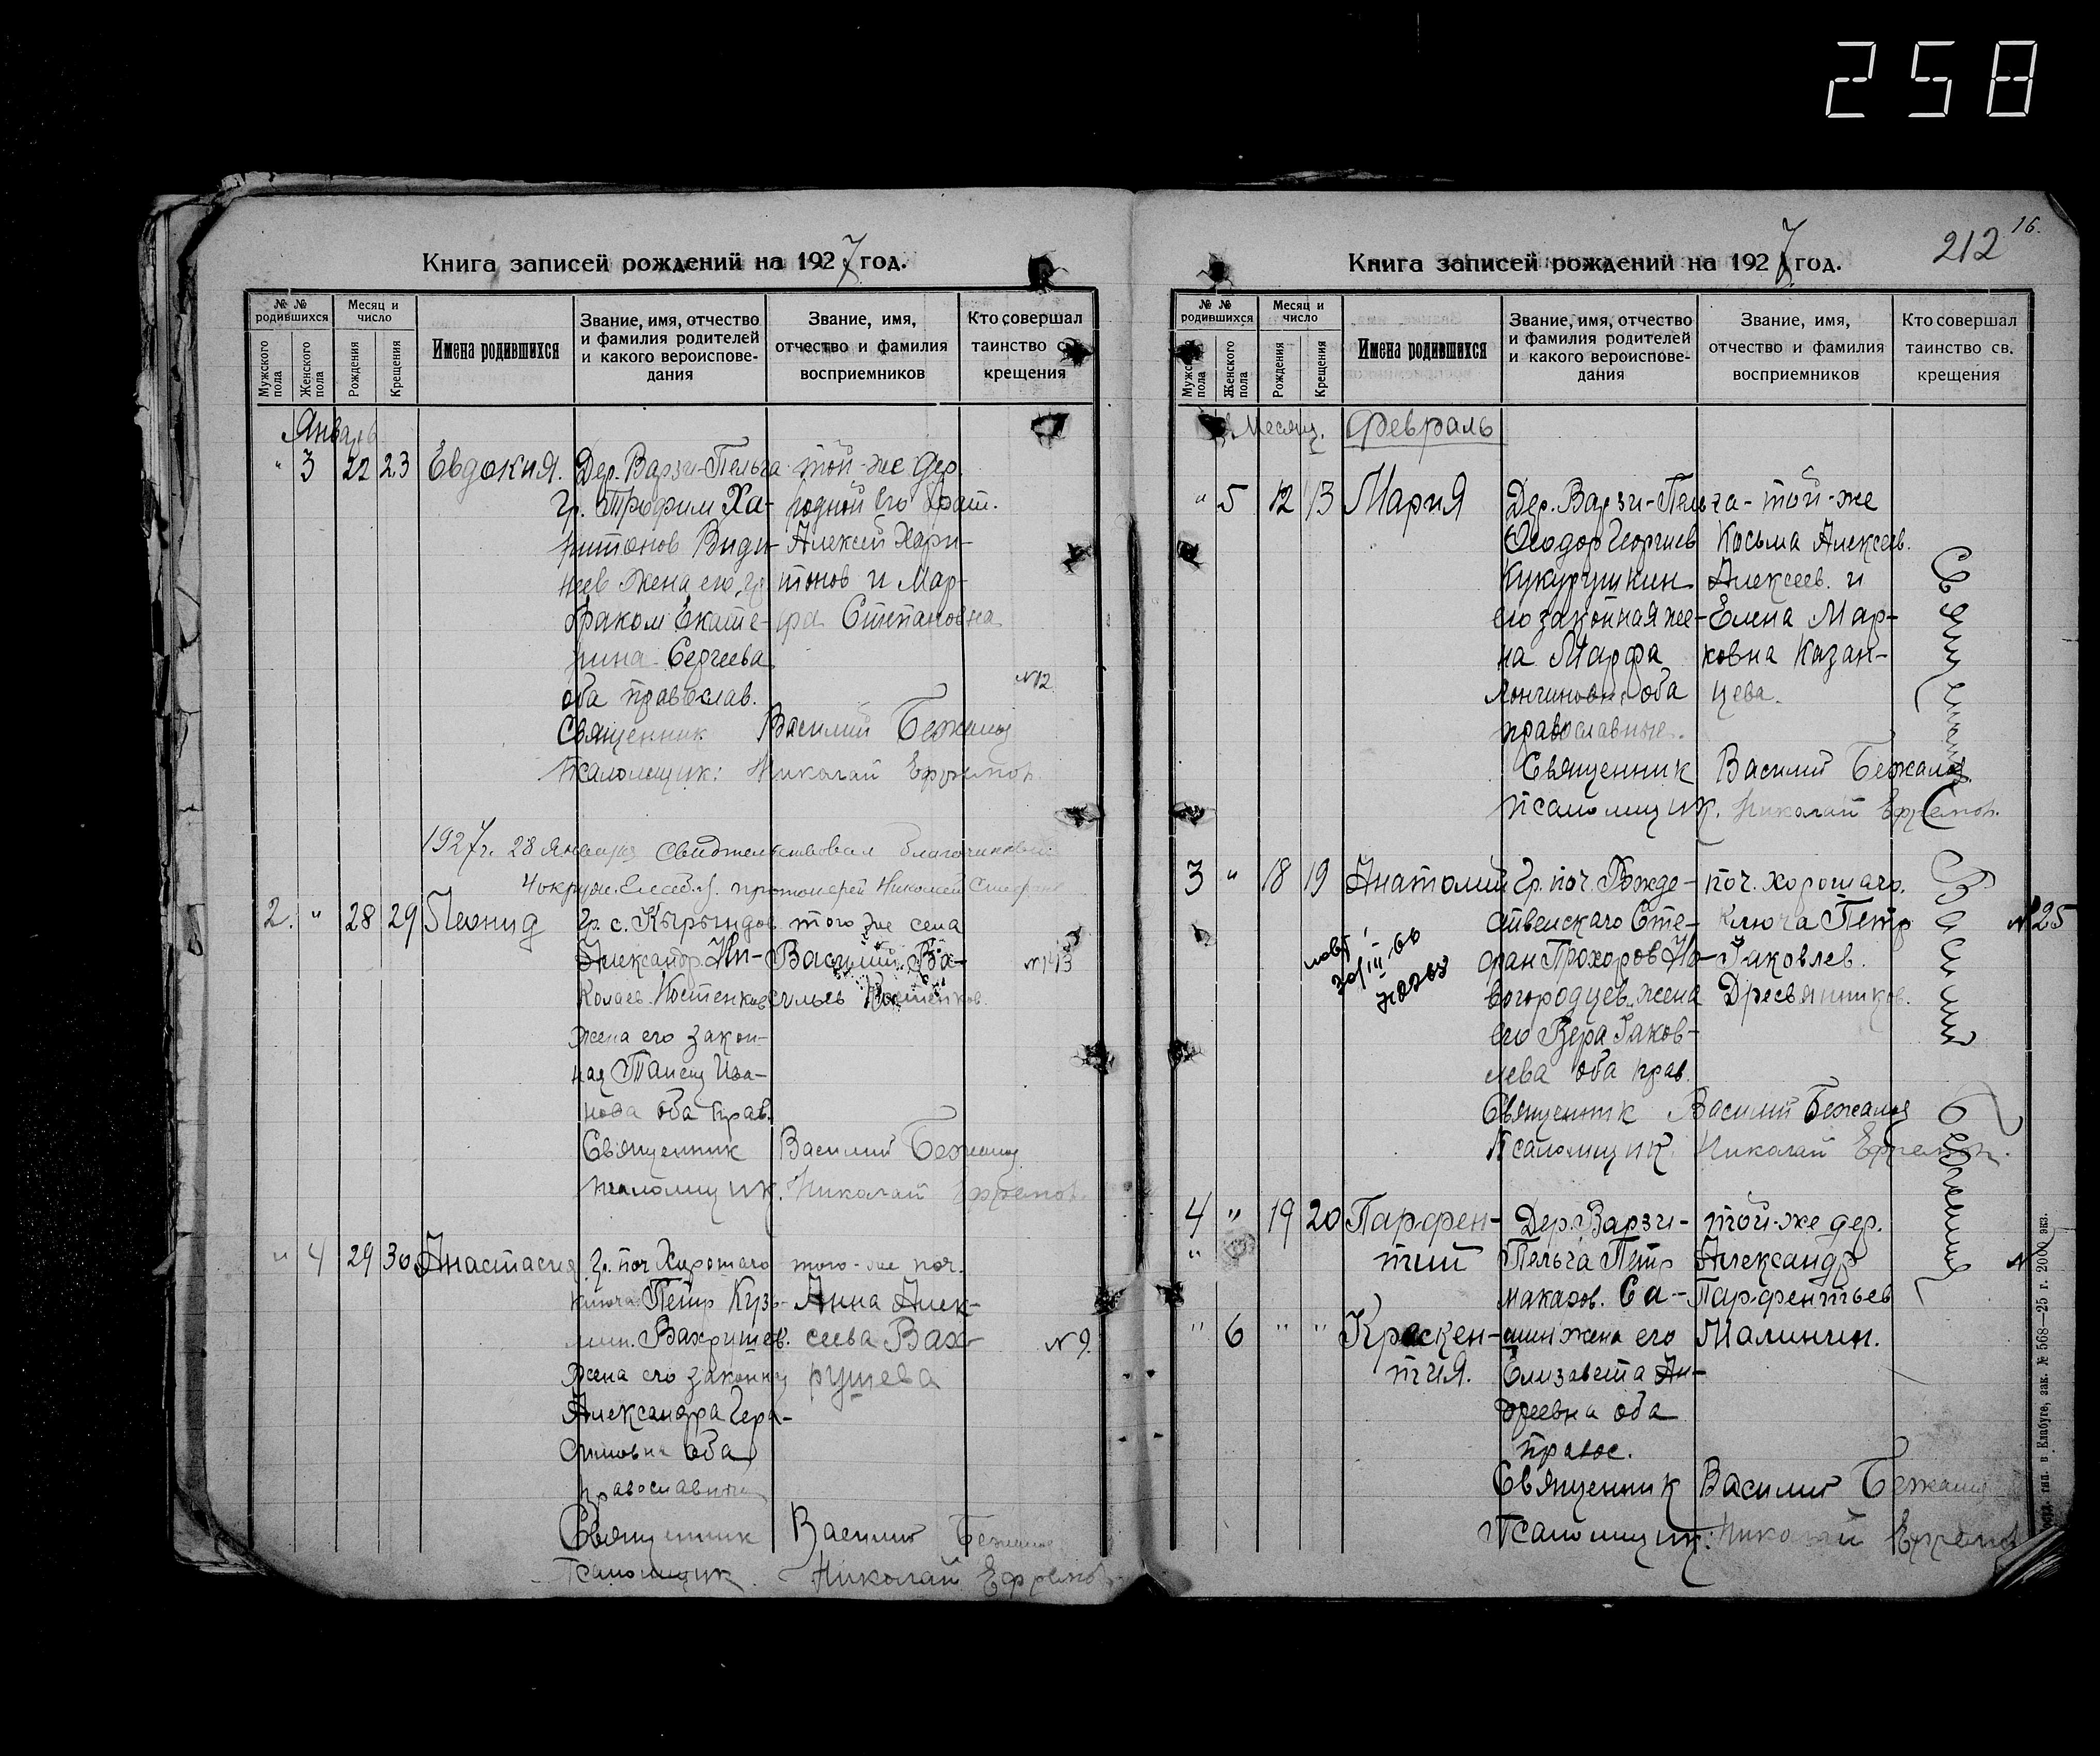 258
Книга записей рождений на 1927 год.
№ № родившихся
Месяц и число
Мужского пола
Женского пола
Рождения
Крещения
Имена родившихся
Звание, имя, отчество и фамилия родителей и какого вероисповедания
Звание, имя, отчество и фамилия восприемников
Кто совершал таинство св. крещения
Январь
" 3 22 23 Евдокия. Дер. Варзи-Пельга той-же дер.
Гр. Трофим Ха- родной его брат.
ритонов Алексей Хари-
жена его, тонов и Мар-
браком Екате- фа Степановна
рина Сергеева
оба православ.
№12
Священник Василий
Псаломщик: Николай Ефремов.
1927 г. 28 января свидетельствовал благочинный
протоиерей Николай
2. " 28 29 Леонид Гр. с. Кырындов того же села
Александр Ни- Василий Ва-
колаев. Костенков сильев Костенков.
№ 13
жена его закон-
ная Таисия Ива-
нова оба прав.
Священник Василий
Псаломщик. Николай Ефремов.
" 4 29 30 Анастасия Гр. поч. Хорошаго того-же поч.
Ключа Петр Кузь- Анна Алек-
мин. Вахрушев. сеева Вах-
№ 9.
жена его законная рушева
Александра Гера-
симовна оба
православные
Священник Василий
Псаломщик Николай Ефремов
16.
212
Книга записей рождений на 1927 год.
№ № родившихся
Месяц и число
Мужского пола
Женского пола
Рождения
Крещения
Имена родившихся
Звание, имя, отчество и фамилия родителей и какого вероисповедания
Звание, имя, отчество и фамилия восприемников
Кто совершал таинство св. крещения
Месяц. Февраль
" 5 12 13 Мария Дер. Варзи-Пельга - той-же
Феодор Георгиев Косьма Алексеев.
Кукурушкин Алексеев. и
его законная же- Елена Мар-
на Марфа ковна Казан-
Лонгиновна оба цева.
православные.
Священник Василий
Псаломщик. Николай Ефремов.
3 " 18 19 Анатолий Гр. поч. Рожде- поч. хорошаго.
ственскаго Сте- Ключа Петр
№25
фан Прохоров Но- Яковлев.
вогородцев. жена Дресвянников.
его Вера Яков-
лева оба прав.
Священник Василий
Псаломщик Николай Ефремов.
4 " 19 20 Парфен- Дер. Варзи- той-же дер.
тий Пельга Петр Александр
№
Макаров. Са- Парфентьев
" 6 " " Крескен- жена его Малинин.
тия. Елизавета Ан-
дреевна оба
правос.
Священник Василий
Псаломщик: Николай Ефремов
Священник Василий
тип. в Елабуге, зак. № 568—25 г. 2000 экз.